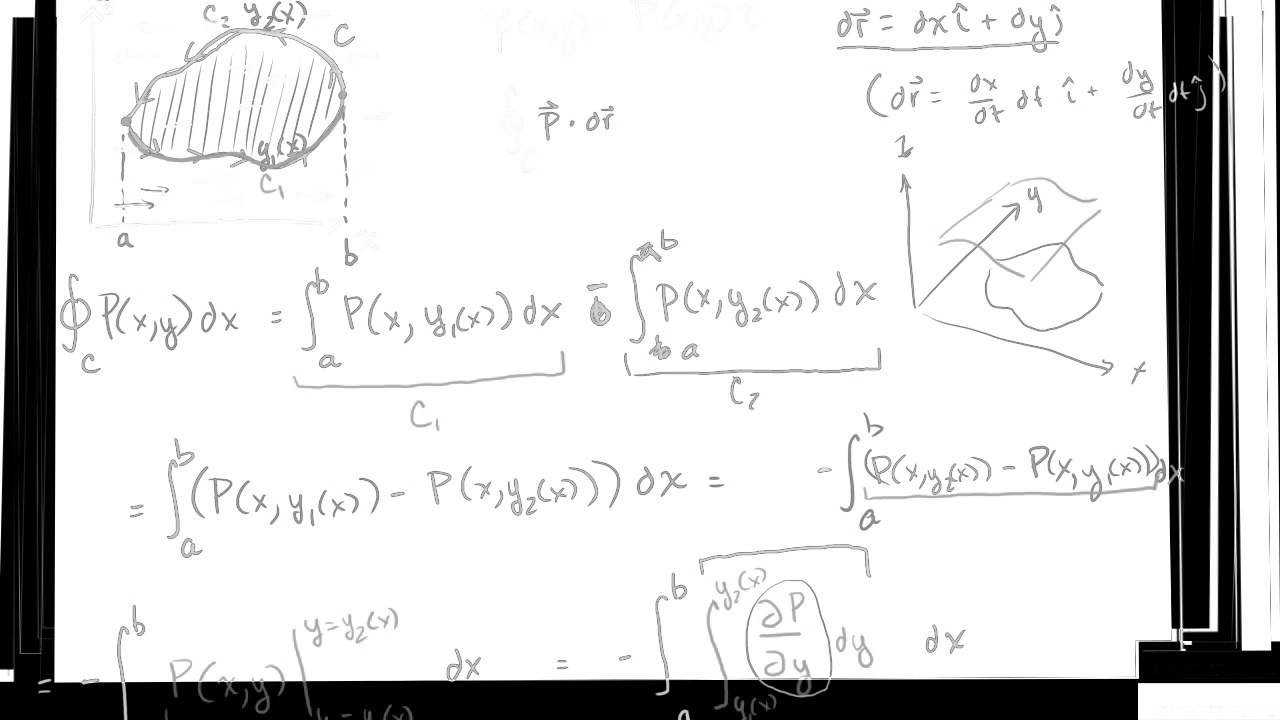 C₂ y₂(x)
C
y₁(x)
C₁
a
b
P⃗ · dr⃗
dr⃗ = dx î + dy ĵ
(dr⃗ = dx/dt dt î + dy/dt dt ĵ)
z
y
x
∮_C P(x,y) dx = ∫_a^b P(x, y₁(x)) dx - ∫_a^b P(x, y₂(x)) dx
C₁
C₂
= ∫_a^b (P(x, y₁(x)) - P(x, y₂(x))) dx = - ∫_a^b (P(x, y₂(x)) - P(x, y₁(x))) dx
= - ∫^b P(x,y) |_{y = y₁(x)}^{y = y₂(x)} dx = - ∫_a^b ∫_{y₁(x)}^{y₂(x)} ∂P/∂y dy dx